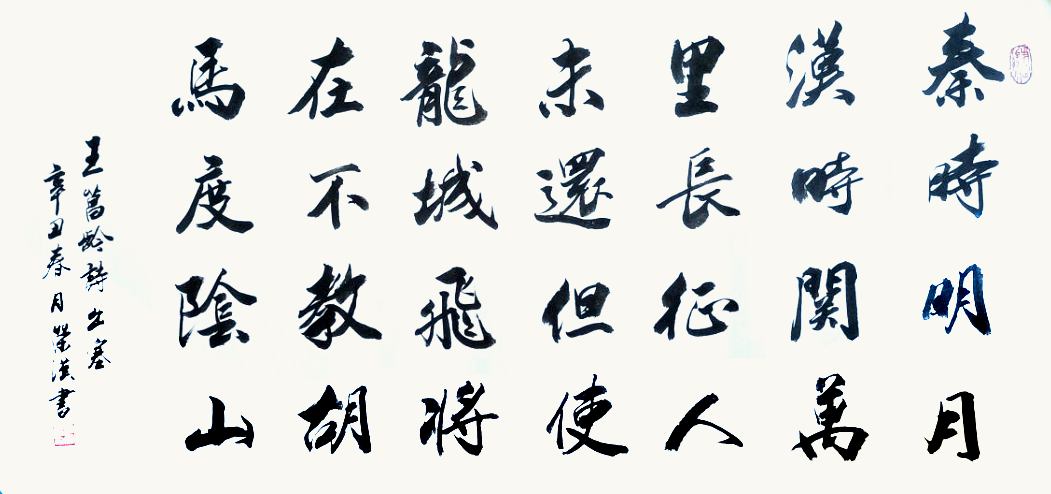 秦時明月
漢時関萬
里長征人
未還但使
龍城飛将
在不教胡
馬度陰山
王菖齡詩出塞
辛丑春月榮漢書